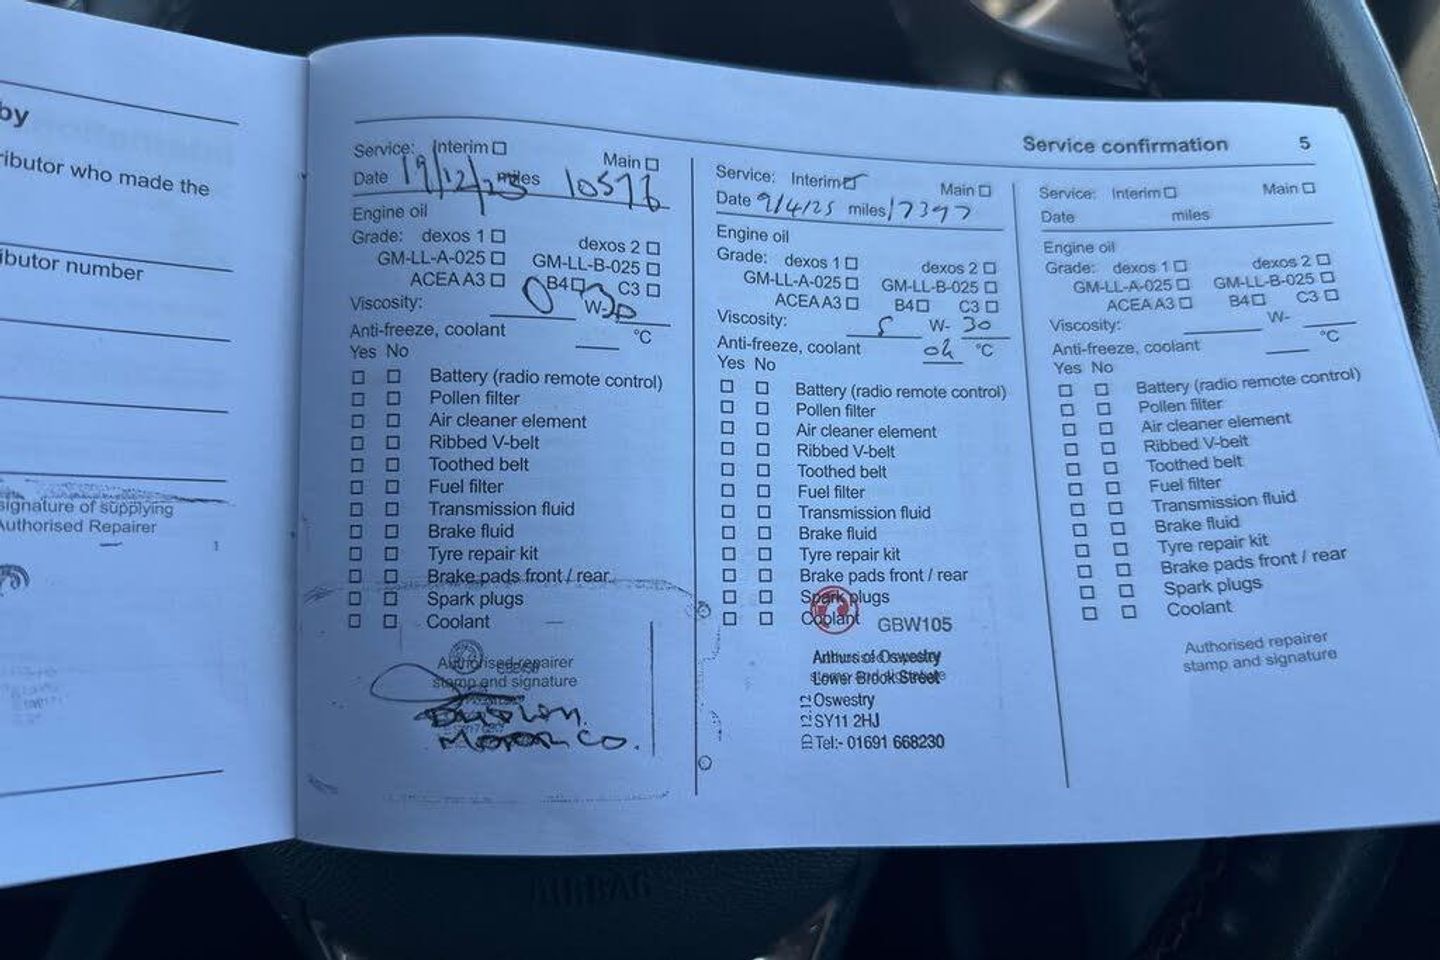 by
ributor who made the
ibutor number
signature of supplying
Authorised Repairer
Service confirmation 5
Service: Interim ☐ Main ☐
Date 19/12/23 miles 10576
Engine oil
Grade: dexos 1 ☐ dexos 2 ☐
GM-LL-A-025 ☐ GM-LL-B-025 ☐
ACEA A3 ☐ B4 ☐ C3 ☐
Viscosity: 0 W- 30
Anti-freeze, coolant °C
Yes No
☐ ☐ Battery (radio remote control)
☐ ☐ Pollen filter
☐ ☐ Air cleaner element
☐ ☐ Ribbed V-belt
☐ ☐ Toothed belt
☐ ☐ Fuel filter
☐ ☐ Transmission fluid
☐ ☐ Brake fluid
☐ ☐ Tyre repair kit
☐ ☐ Brake pads front / rear
☐ ☐ Spark plugs
☐ ☐ Coolant
Authorised repairer
stamp and signature
Motor Co.
Service: Interim ☑ Main ☐
Date 9/4/25 miles 17397
Engine oil
Grade: dexos 1 ☐ dexos 2 ☐
GM-LL-A-025 ☐ GM-LL-B-025 ☐
ACEA A3 ☐ B4 ☐ C3 ☐
Viscosity: 5 W- 30
Anti-freeze, coolant ok °C
Yes No
☐ ☐ Battery (radio remote control)
☐ ☐ Pollen filter
☐ ☐ Air cleaner element
☐ ☐ Ribbed V-belt
☐ ☐ Toothed belt
☐ ☐ Fuel filter
☐ ☐ Transmission fluid
☐ ☐ Brake fluid
☐ ☐ Tyre repair kit
☐ ☐ Brake pads front / rear
☐ ☐ Spark plugs
☐ ☐ Coolant
GBW105
Arthurs of Oswestry
Lower Brook Street
Oswestry
SY11 2HJ
Tel:- 01691 668230
ID 12.12
Service: Interim ☐ Main ☐
Date miles
Engine oil
Grade: dexos 1 ☐ dexos 2 ☐
GM-LL-A-025 ☐ GM-LL-B-025 ☐
ACEA A3 ☐ B4 ☐ C3 ☐
Viscosity: W-
Anti-freeze, coolant °C
Yes No
☐ ☐ Battery (radio remote control)
☐ ☐ Pollen filter
☐ ☐ Air cleaner element
☐ ☐ Ribbed V-belt
☐ ☐ Toothed belt
☐ ☐ Fuel filter
☐ ☐ Transmission fluid
☐ ☐ Brake fluid
☐ ☐ Tyre repair kit
☐ ☐ Brake pads front / rear
☐ ☐ Spark plugs
☐ ☐ Coolant
Authorised repairer
stamp and signature
AIRBAG